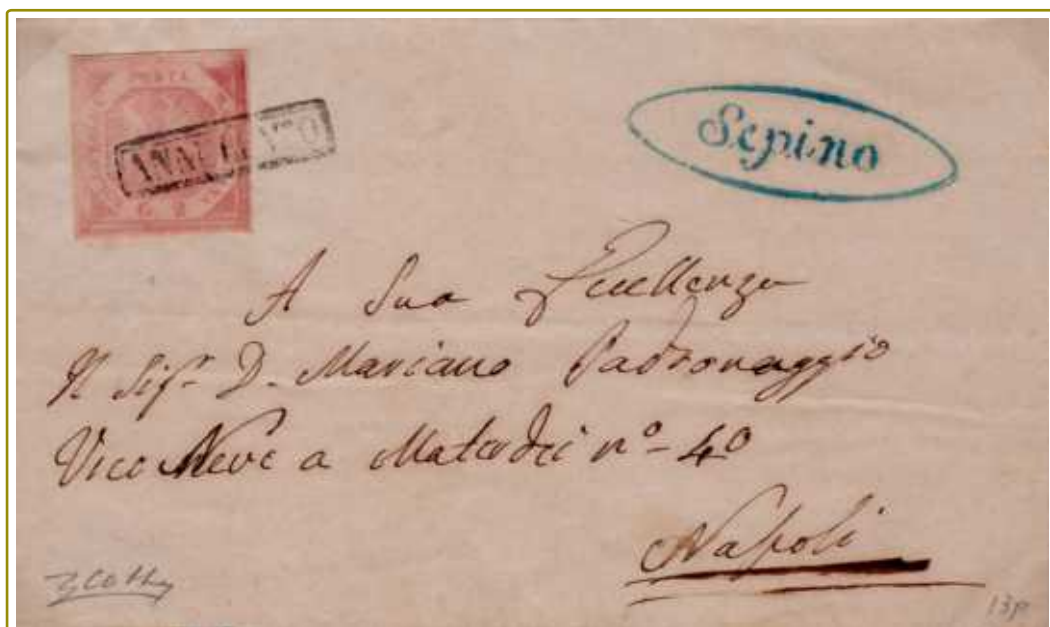 POSTA
G 2
ANNULLATO
Sepino
A Sua Eccellenza
Il Sigr D. Mariano Padronaggio
Vico Neve a Materdei nº 40
Napoli
13P